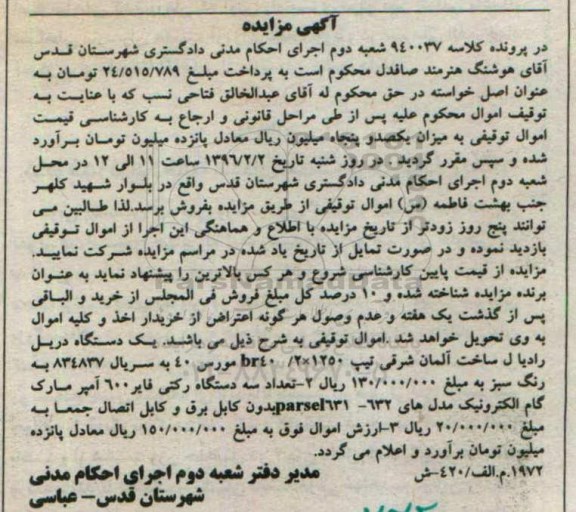 آگهی مزایده
در پرونده کلاسه ۹۴۰۰۳۷ شعبه دوم اجرای احکام مدنی دادگستری شهرستان قدس
آقای هوشنگ هنرمند صاقدل محکوم است به پرداخت مبلغ ۲۴/۵۱۵/۷۸۹ تومان به
عنوان اصل خواسته در حق محکوم له آقای عبدالخالق فتاحی نسب که با عنایت به
توقیف اموال محکوم علیه پس از طی مراحل قانونی و ارجاع به کارشناسی قیمت
اموال توقیفی به میزان یکصدو پنجاه میلیون ریال معادل پانزده میلیون تومان برآورد
شده و سپس مقرر گردید . در روز شنبه تاریخ ۱۳۹۶/۲/۲ ساعت ۱۱ الی ۱۲ در محل
شعبه دوم اجرای احکام مدنی دادگستری شهرستان قدس واقع در بلوار شهید کلهر
جنب بهشت فاطمه (س) اموال توقیفی از طریق مزایده بفروش برسد.لذا طالبین می
توانند پنج روز زودتر از تاریخ مزایده با اطلاع و هماهنگی این اجرا از اموال توقیفی
بازدید نموده و در صورت تمایل از تاریخ یاد شده در مراسم مزایده شرکت نمایید.
مزایده از قیمت پایین کارشناسی شروع و هر کس بالاترین را پیشنهاد نماید به عنوان
برنده مزایده شناخته شده و ۱۰ درصد کل مبلغ فروش فی المجلس از خرید و الباقی
پس از گذشت یک هفته و عدم وصول هر گونه اعتراض از خریدار اخذ و کلیه اموال
به وی تحویل خواهد شد .اموال توقیفی به شرح ذیل می باشد. یک دستگاه دریل
رادیا ل ساخت آلمان شرقی تیپ br۴۰ /۲×۱۲۵۰ مورس ۴۰ به سریال ۸۳۴۸۳۷ به
رنگ سبز به مبلغ ۱۳۰/۰۰۰/۰۰۰ ریال ۲-تعداد سه دستگاه رکتی فایر۶۰۰ آمپر مارک
گام الکترونیک مدل های ۶۳۲- parsel۶۳۱بدون کابل برق و کابل اتصال جمعا به
مبلغ ۲۰/۰۰۰/۰۰۰ ریال ۳-ارزش اموال فوق به مبلغ ۱۵۰/۰۰۰/۰۰۰ ریال معادل پانزده
میلیون تومان برآورد و اعلام می گردد.
۱۹۷۲.م.الف/۴۲۰-ش
مدیر دفتر شعبه دوم اجرای احکام مدنی
شهرستان قدس– عباسی